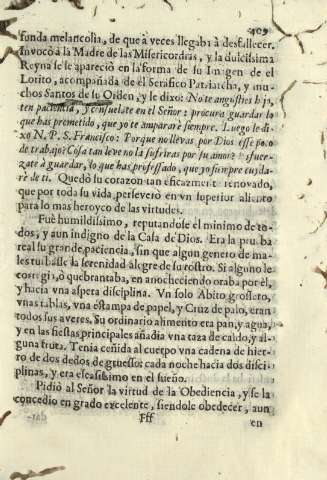 409
funda melancolia, de que à veces llegaba à desfallecer.
Invocò à la Madre de las Misericordias, y la dulcissima
Reyna se le apareciò en la forma de su Imagen de el
Lorito, acompañada de el Serafico Patriarcha, y mu-
chos Santos de su Orden, y le dixo: No te angusties hijo,
ten paciencia, y consuelate en el Señor: procura guardar lo
que has prometido, que yo te ampararè siempre. Luego le di-
xo N. P. S. Francisco: Porque no llevas por Dios esse poco
de trabajo? Cosa tan leve no la sufriras por su amor? Esfuer-
zate à guardar, lo que has professado, que yo siempre cuyda-
rè de ti. Quedò su corazon tan eficazmente renovado,
que por toda su vida perseverò en vn superior aliento
para lo mas heroyco de las virtudes.
Fuè humildissimo, reputandose el minimo de to-
dos, y aun indigno de la Casa de Dios. Era la prueba
real su grande paciencia, sin que algun genero de ma-
les turbasse la serenidad alegre de su rostro. Si alguno le
corregia, ò quebrantaba, en anocheciendo oraba por èl,
y hacia vna aspera disciplina. Vn solo Abito grossero,
vnas tablas, vna estampa de papel, y Cruz de palo, eran
todos sus averes. Su ordinario alimento era pan, y agua,
y en las fiestas principales añadia vna taza de caldo, y al-
guna fruta. Tenia ceñida al cuerpo vna cadena de hier-
ro de dos dedos de gruesso: cada noche hacia dos disci-
plinas, y era escasissimo en el sueño.
Pidiò al Señor la virtud de la Obediencia, y se la
concediò en grado excelente, siendole obedecer, aun
Fff
en